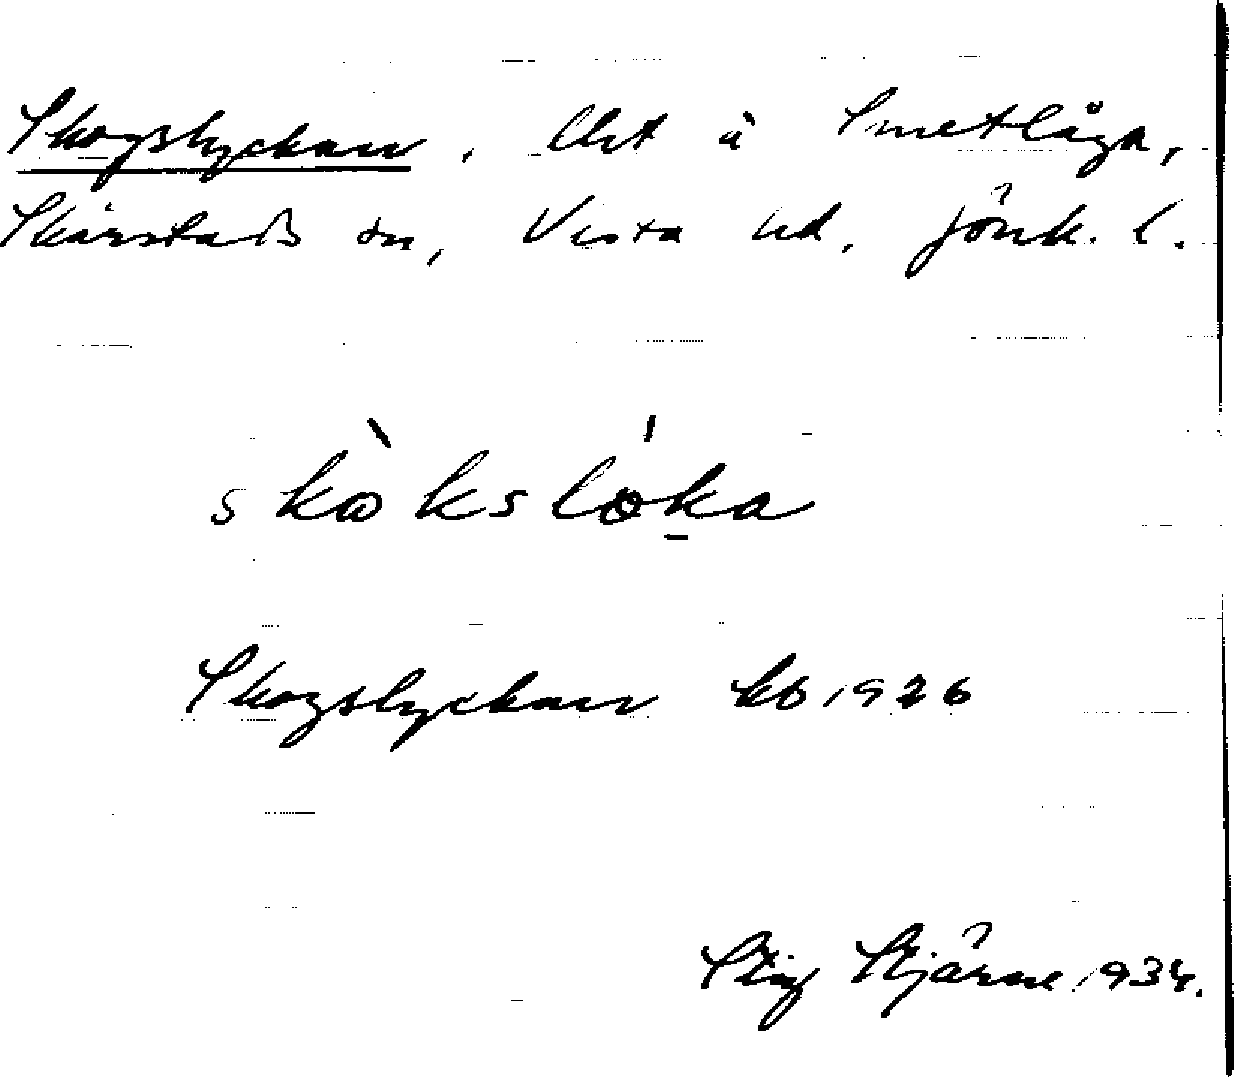 Skogslyckan, lht å Smetlåga,
Skärstads sn, Vista hd, Jönk. l.
skòkslǿka
Skogslyckan kb 1926
Stig Stjärne 1934.